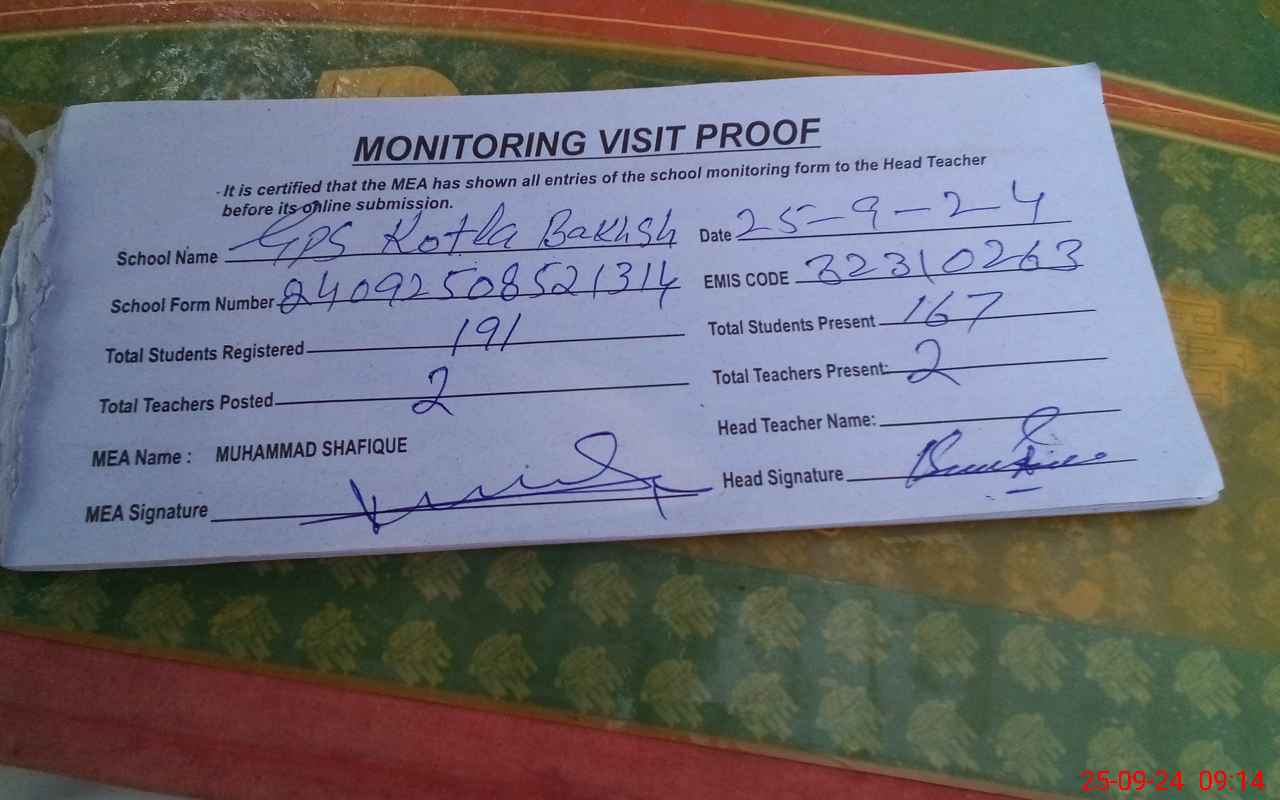 MONITORING VISIT PROOF
- It is certified that the MEA has shown all entries of the school monitoring form to the Head Teacher
before its online submission.
School Name GPS Kotla Bakhsh Date 25-9-24
School Form Number 24092508521314 EMIS CODE 32310263
Total Students Registered 191 Total Students Present 167
Total Teachers Posted 2 Total Teachers Present: 2
MEA Name : MUHAMMAD SHAFIQUE Head Teacher Name:
MEA Signature Head Signature
25-09-24 09:14